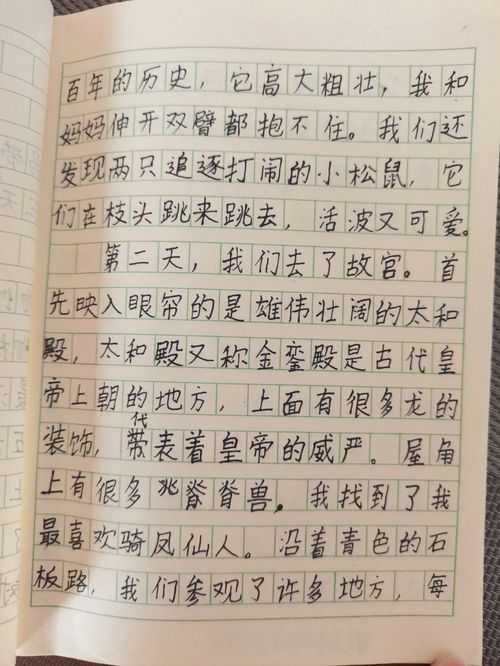 百年的历史，它高大粗壮，我和
妈妈伸开双臂都抱不住。我们还
发现两只追逐打闹的小松鼠，它
们在枝头跳来跳去，活波又可爱。
第二天，我们去了故宫。首
先映入眼帘的是雄伟壮阔的太和
殿，太和殿又称金銮殿是古代皇
帝上朝的地方，上面有很多龙的
代
装饰，带表着皇帝的威严。屋角
上有很多兆脊脊兽。我找到了我
最喜欢骑凤仙人。沿着青色的石
板路，我们参观了许多地方，每